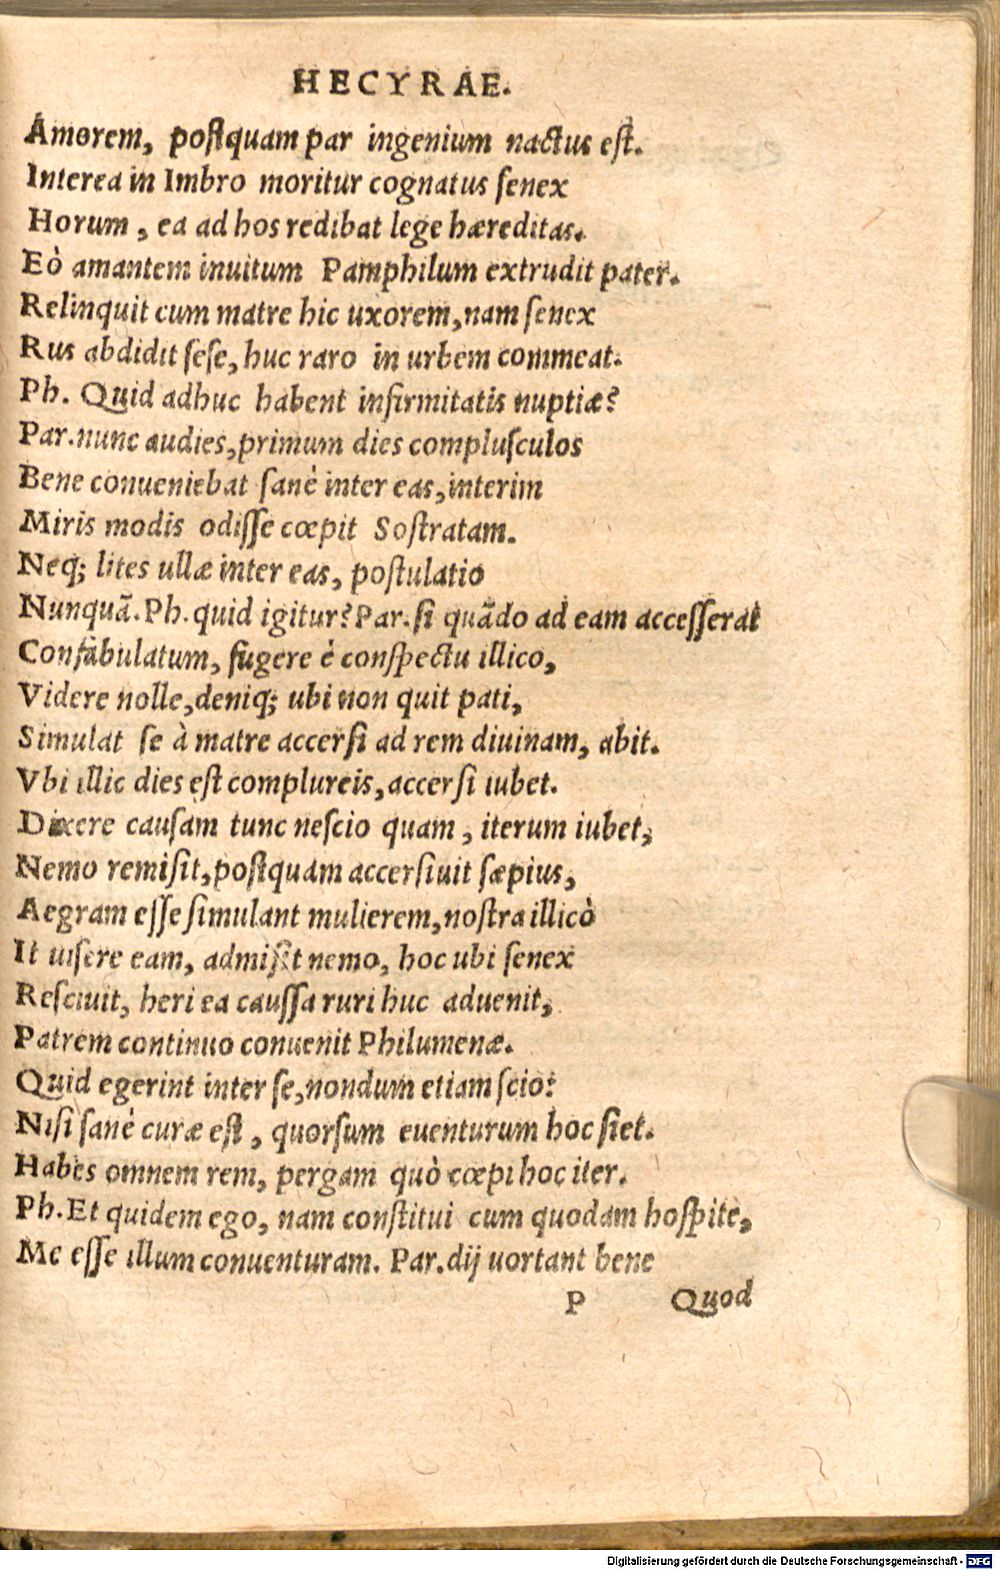 HECYRAE.
Amorem, postquam par ingenium nactus est.
Interea in Imbro moritur cognatus senex
Horum, ea ad hos redibat lege hæreditas.
Eò amantem inuitum Pamphilum extrudit pater.
Relinquit cum matre hic uxorem, nam senex
Rus abdidit sese, huc raro in urbem commeat.
Ph. Quid adhuc habent infirmitatis nuptiæ?
Par. nunc audies, primum dies complusculos
Bene conueniebat sanè inter eas, interim
Miris modis odisse cœpit Sostratam.
Neq; lites ullæ inter eas, postulatio
Nunquã. Ph. quid igitur? Par. si quãdo ad eam accesserat
Confabulatum, fugere è conspectu illico,
Videre nolle, deniq; ubi non quit pati,
Simulat se à matre accersi ad rem diuinam, abit.
Vbi illic dies est complureis, accersi iubet.
Dixere causam tunc nescio quam, iterum iubet,
Nemo remisit, postquam accersiuit sæpius,
Aegram esse simulant mulierem, nostra illicò
It uisere eam, admisit nemo, hoc ubi senex
Resciuit, heri ea caussa ruri huc aduenit,
Patrem continuo conuenit Philumenæ.
Quid egerint inter se, nondum etiam scio:
Nisi sanè curæ est, quorsum euenturum hoc siet.
Habes omnem rem, pergam quò cœpi hoc iter.
Ph. Et quidem ego, nam constitui cum quodam hospite,
Me esse illum conuenturam. Par. dij uortant bene
P Quod
Digitalisierung gefördert durch die Deutsche Forschungsgemeinschaft - DFG